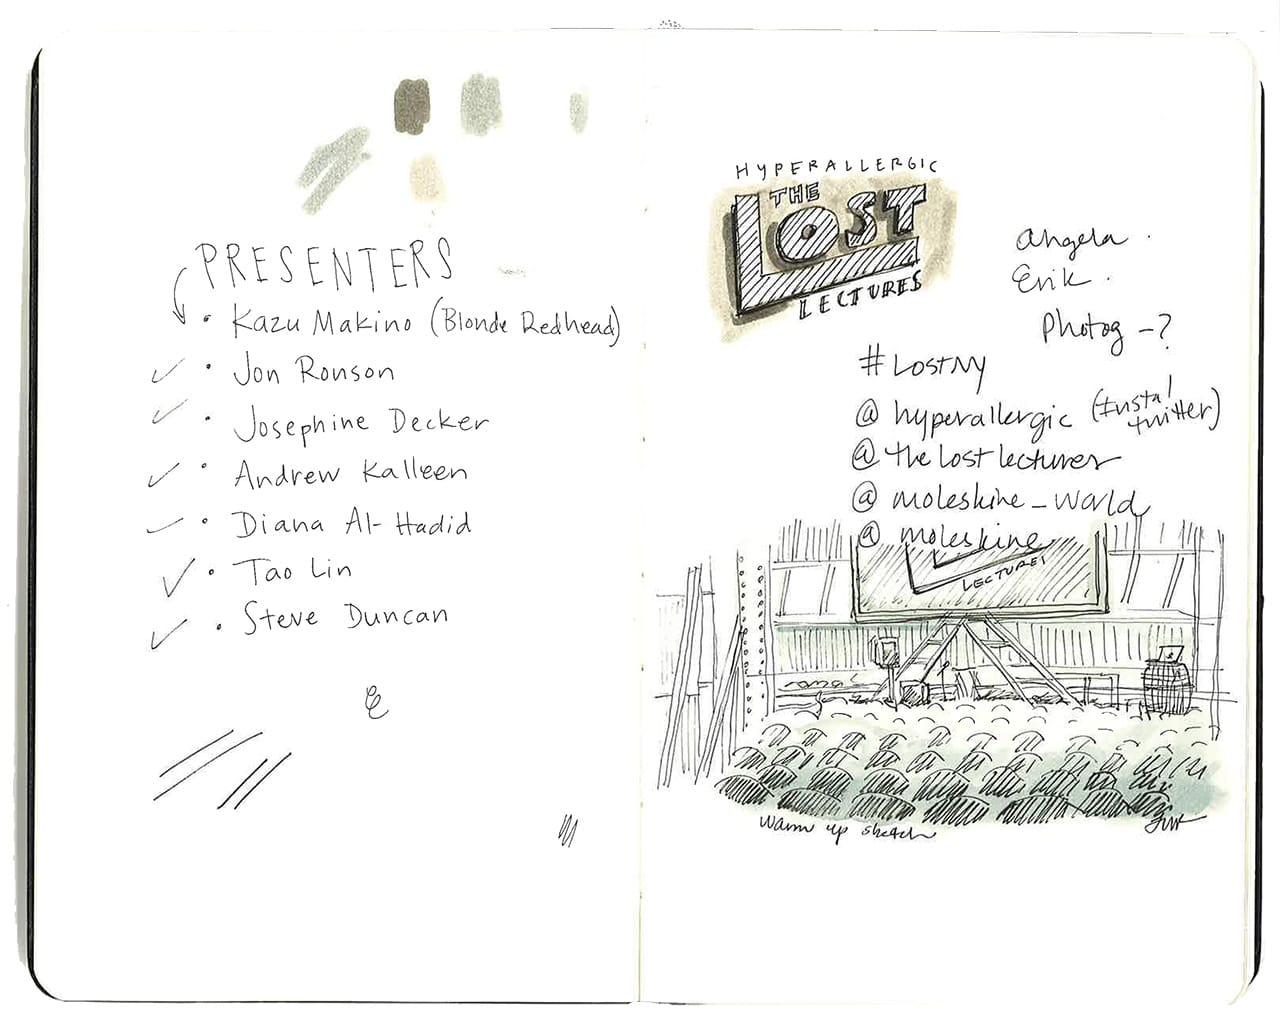 PRESENTERS
• Kazu Makino (Blonde Redhead)
• Jon Ronson
• Josephine Decker
• Andrew Kalleen
• Diana Al-Hadid
• Tao Lin
• Steve Duncan
HYPERALLERGIC
THE
LOST
LECTURES
Angela
Erik
Photog -?
#LOSTNY
@hyperallergic (Insta/
twitter)
@thelostlectures
@moleskine_world
@moleskine
LECTURES
warm up sketch